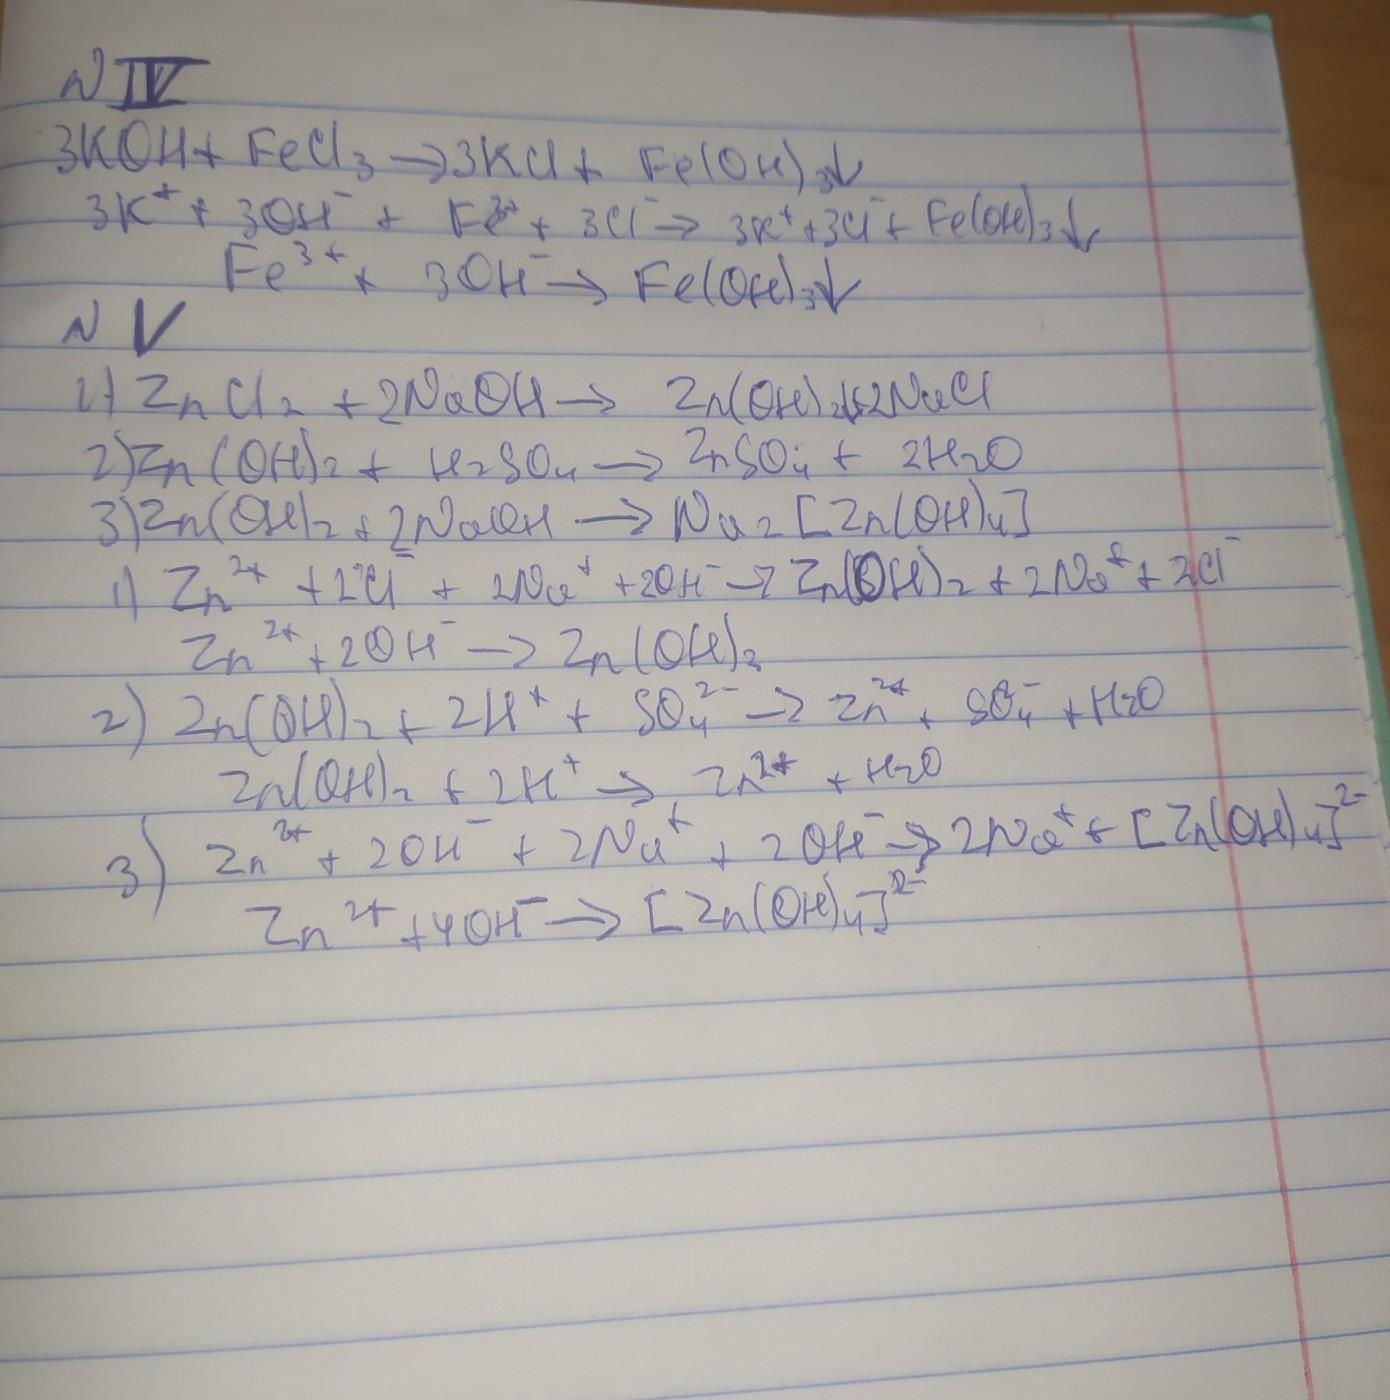 N IV
3KOH + FeCl₃ → 3KCl + Fe(OH)₃↓
3K⁺ + 3OH⁻ + Fe³⁺ + 3Cl⁻ → 3K⁺ + 3Cl⁻ + Fe(OH)₃↓
Fe³⁺ + 3OH⁻ → Fe(OH)₃↓
N V
1) ZnCl₂ + 2NaOH → Zn(OH)₂↓ + 2NaCl
2) Zn(OH)₂ + H₂SO₄ → ZnSO₄ + 2H₂O
3) Zn(OH)₂ + 2NaOH → Na₂[Zn(OH)₄]
1) Zn²⁺ + 2Cl⁻ + 2Na⁺ + 2OH⁻ → Zn(OH)₂ + 2Na⁺ + 2Cl⁻
Zn²⁺ + 2OH⁻ → Zn(OH)₂
2) Zn(OH)₂ + 2H⁺ + SO₄²⁻ → Zn²⁺ + SO₄²⁻ + H₂O
Zn(OH)₂ + 2H⁺ → Zn²⁺ + H₂O
3) Zn²⁺ + 2OH⁻ + 2Na⁺ + 2OH⁻ → 2Na⁺ + [Zn(OH)₄]²⁻
Zn²⁺ + 4OH⁻ → [Zn(OH)₄]²⁻